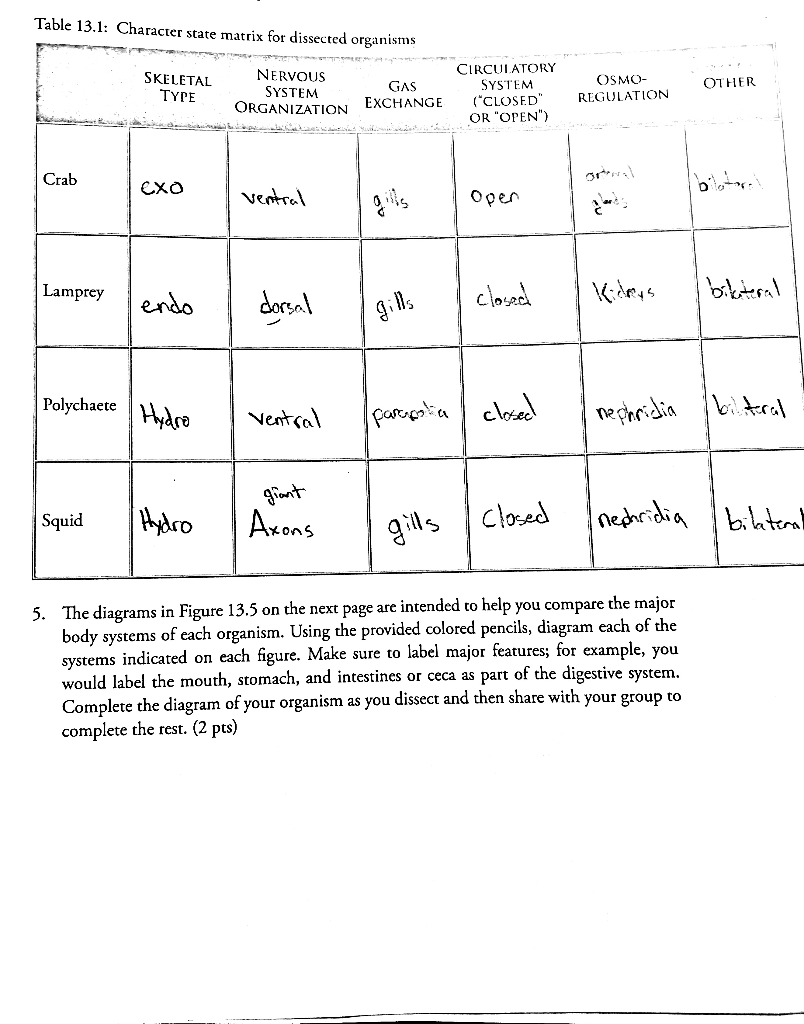 Table 13.1: Character state matrix for dissected organisms
SKELETAL TYPE
NERVOUS SYSTEM ORGANIZATION
GAS EXCHANGE
CIRCULATORY SYSTEM ("CLOSED" OR "OPEN")
OSMO-REGULATION
OTHER
Crab
exo
ventral
gills
open
glands
bilateral
Lamprey
endo
dorsal
gills
closed
Kidneys
bilateral
Polychaete
Hydro
ventral
closed
nephridia
Squid
Hydro
giant
Axons
gills
Closed
bilateral
5. The diagrams in Figure 13.5 on the next page are intended to help you compare the major
body systems of each organism. Using the provided colored pencils, diagram each of the
systems indicated on each figure. Make sure to label major features; for example, you
would label the mouth, stomach, and intestines or ceca as part of the digestive system.
Complete the diagram of your organism as you dissect and then share with your group to
complete the rest. (2 pts)